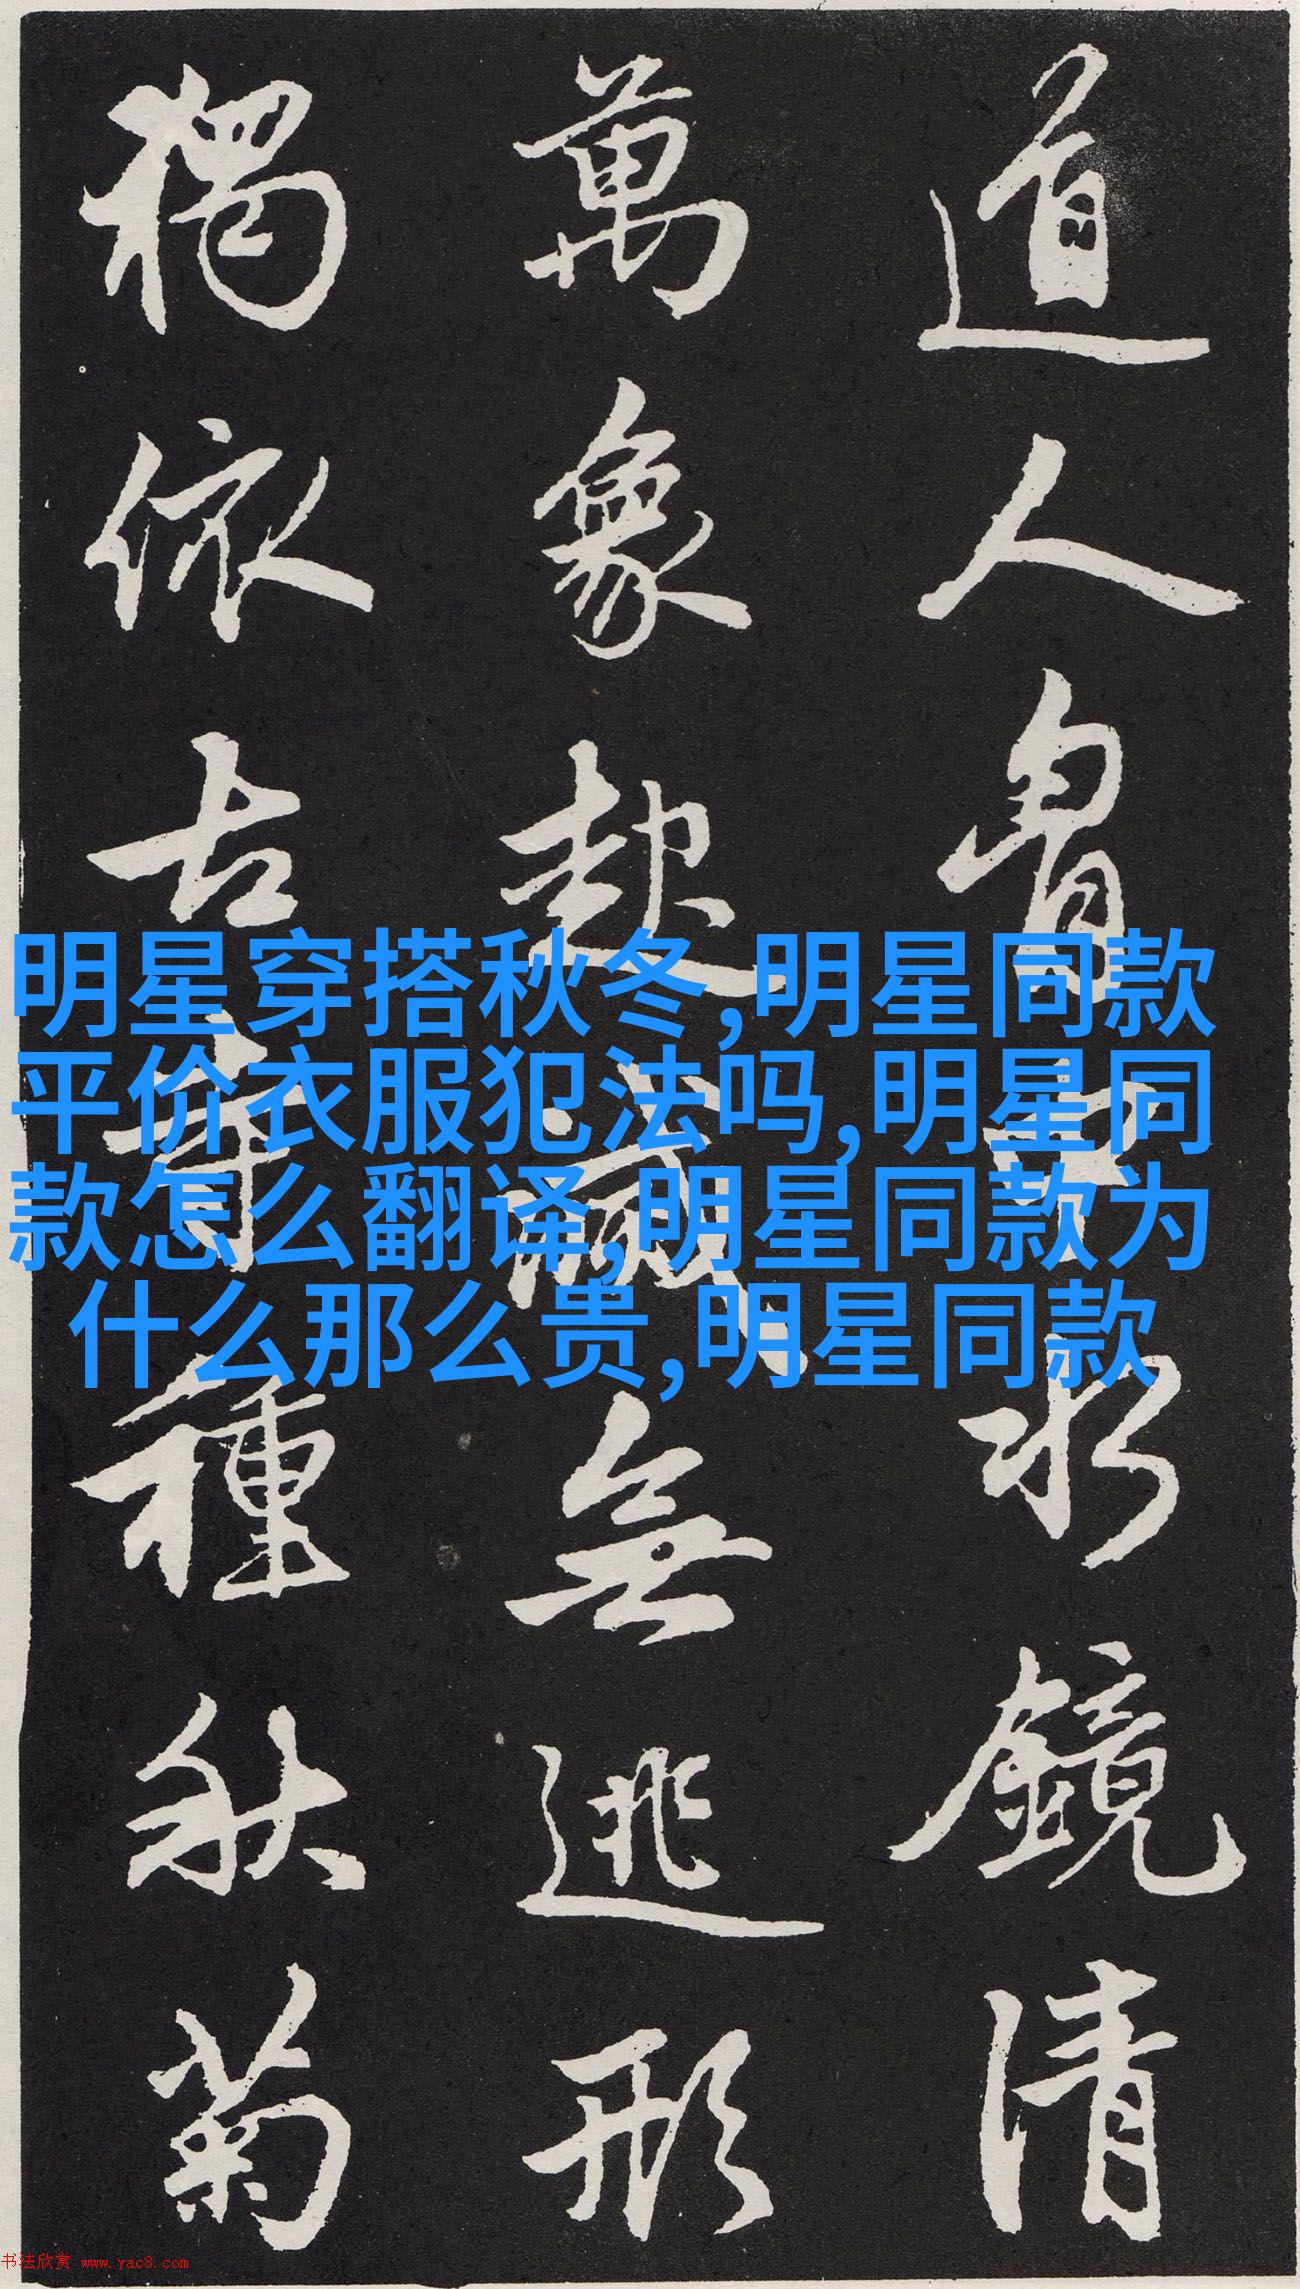 道人胸中水鏡清
萬象起滅無逃形
獨依古寺種秋菊
明星穿搭秋冬,明星同款
平价衣服犯法吗,明星同
款怎么翻译,明星同款为
什么那么贵,明星同款
书法欣赏 www.yac8.com